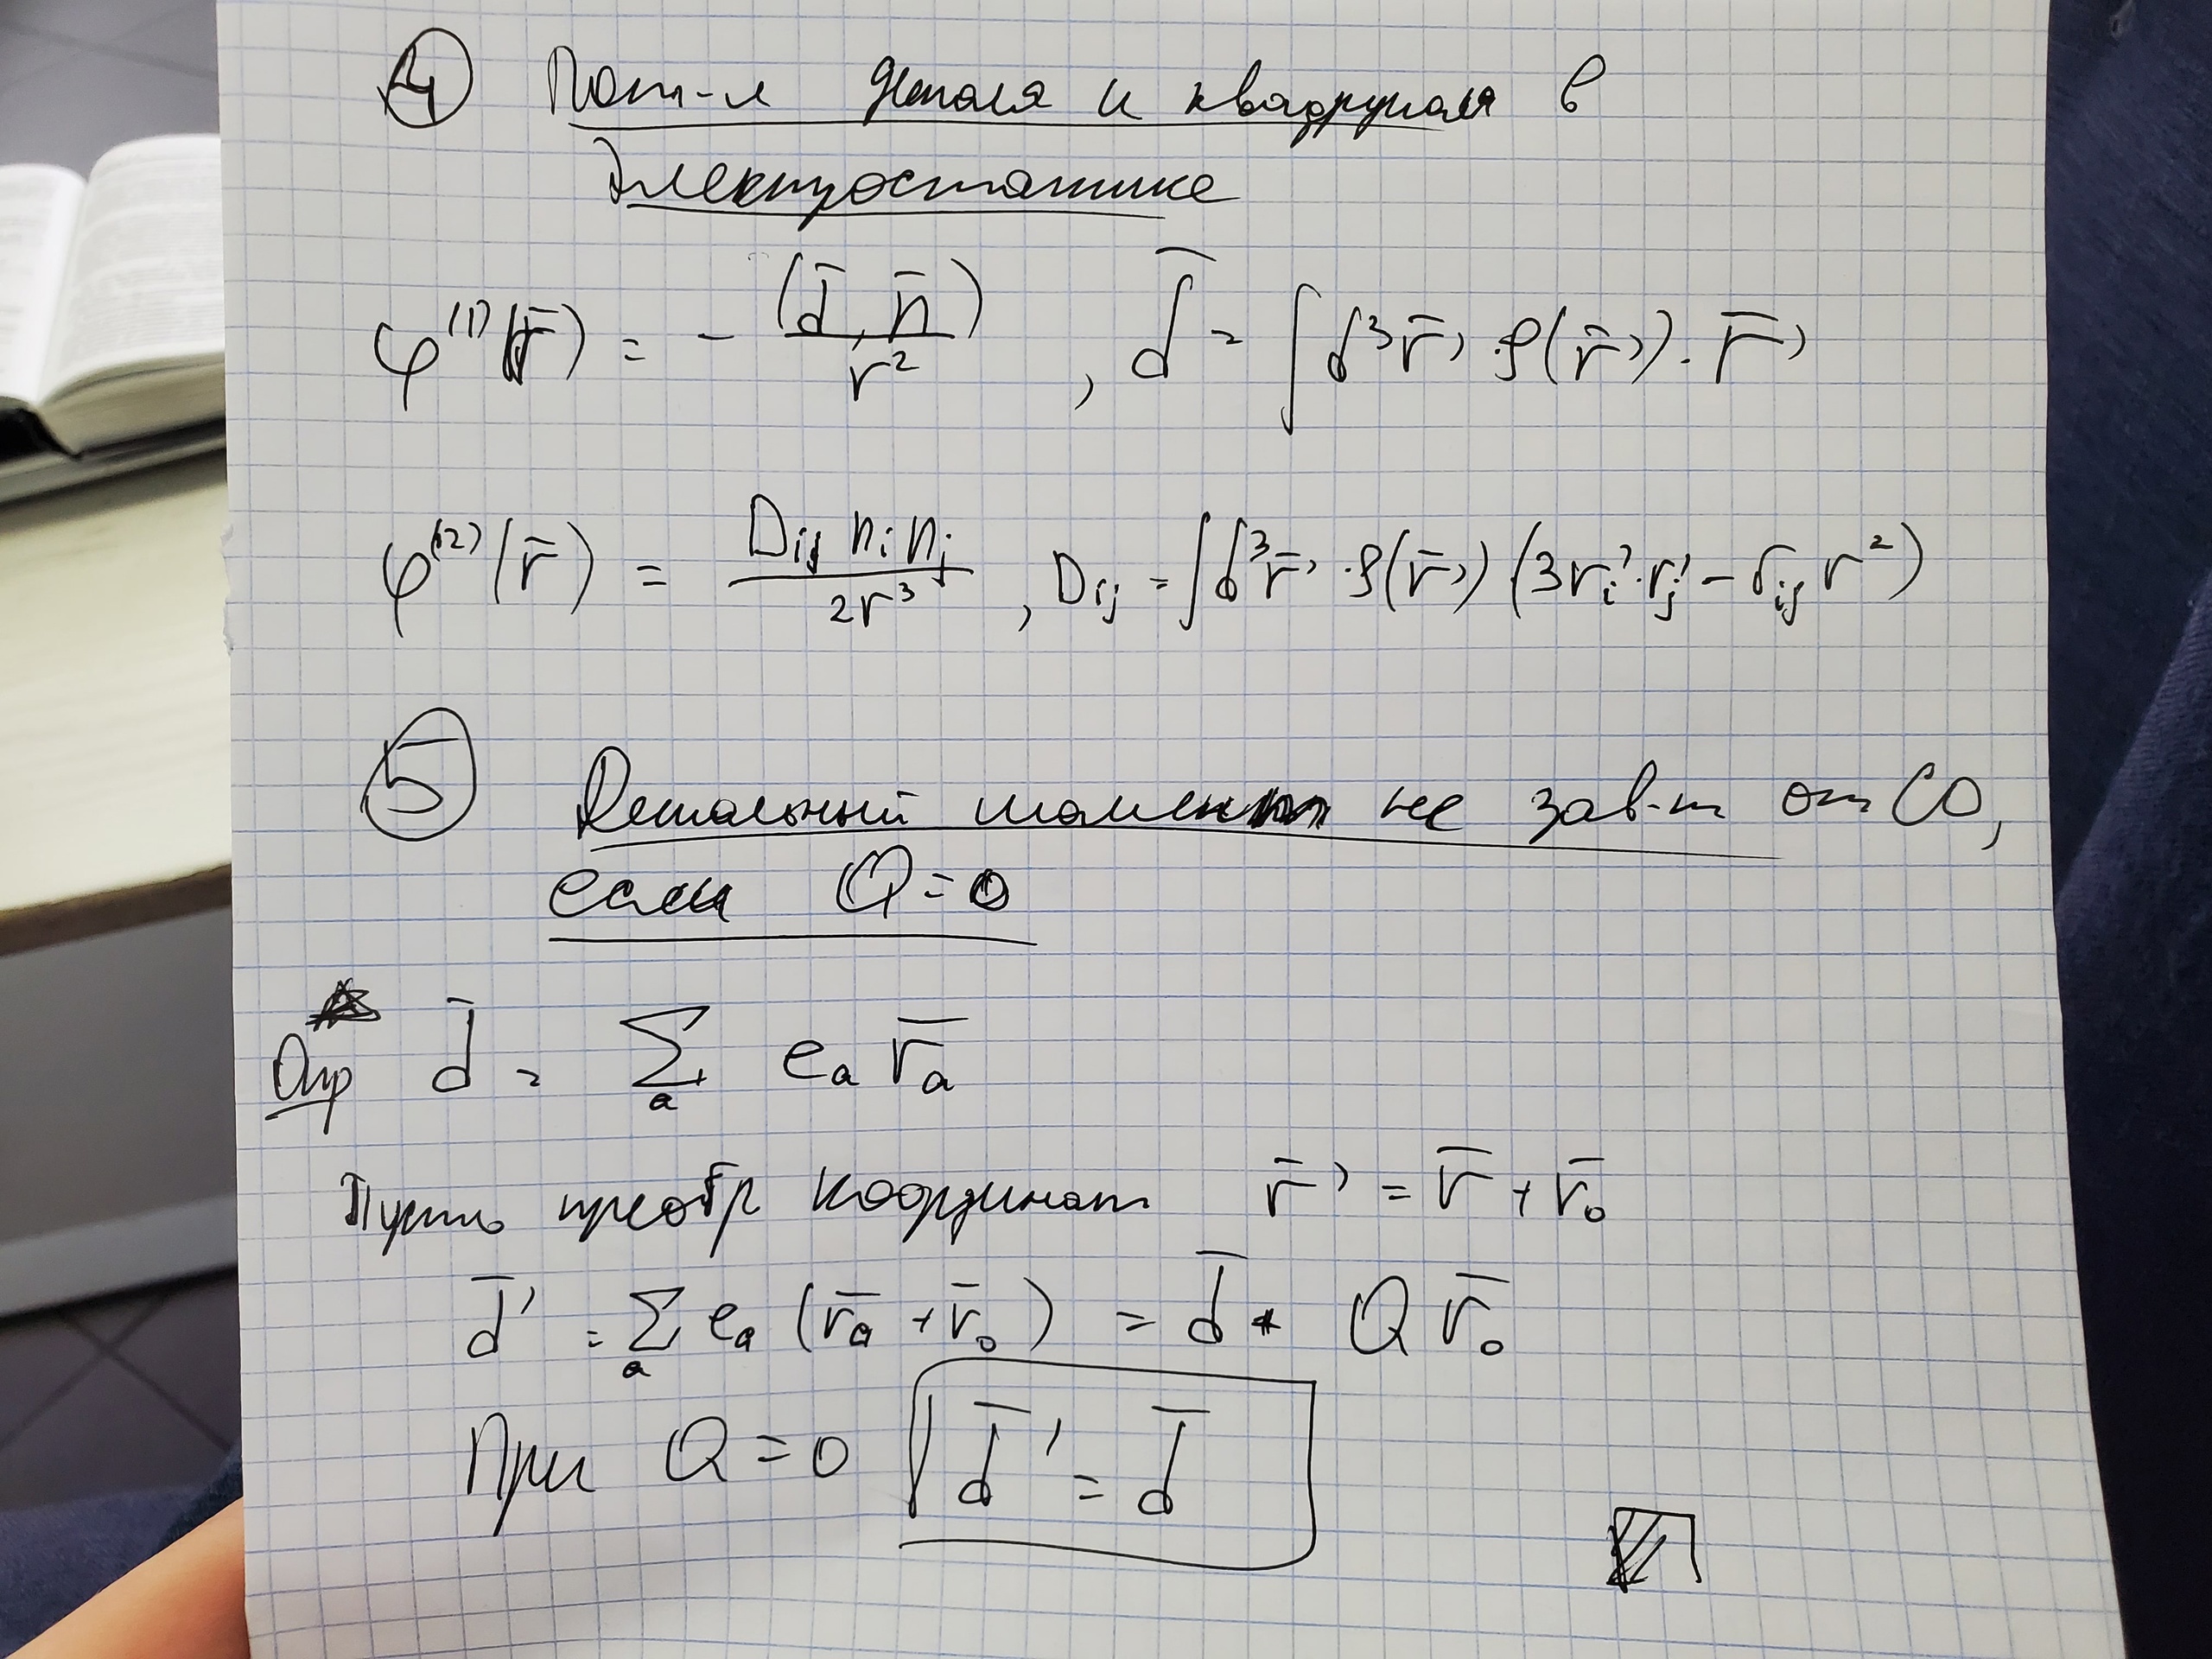 ④ Пот-л диполя и квадруполя в
электростатике
φ⁽¹⁾(r̄) = - (d̄, n̄) / r² , d̄ = ∫ d³r̄' · ρ(r̄') · r̄'
φ⁽²⁾(r̄) = Dij ni nj / 2r³ , Dij = ∫ d³r̄' · ρ(r̄') (3ri' · rj' - δij r²)
⑤ Дипольный момент не зав-т от СО,
если Q = 0
Опр d̄ = Σₐ eₐ r̄ₐ
Пусть преобр координат r̄' = r̄ + r̄₀
d̄' = Σₐ eₐ (r̄ₐ + r̄₀) = d̄ + Q r̄₀
При Q = 0 d̄' = d̄